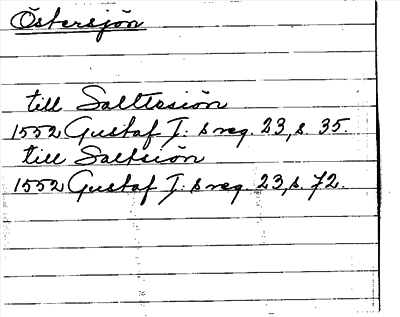 Östersjön
till Saltesiön
1552 Gustaf I: s reg. 23, s. 35.
till Saltsiön
1552 Gustaf I: s reg. 23, s. 72.